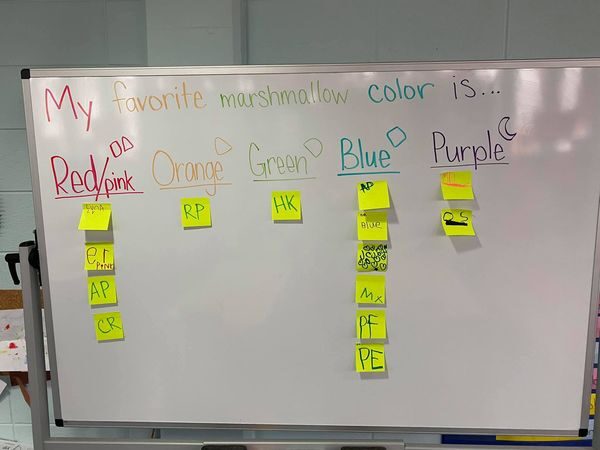 My favorite marshmallow color is...
Red/pink
Orange
Green
Blue
Purple
RP
HK
AP
BLUE
AP
CR
Mx
PF
PE